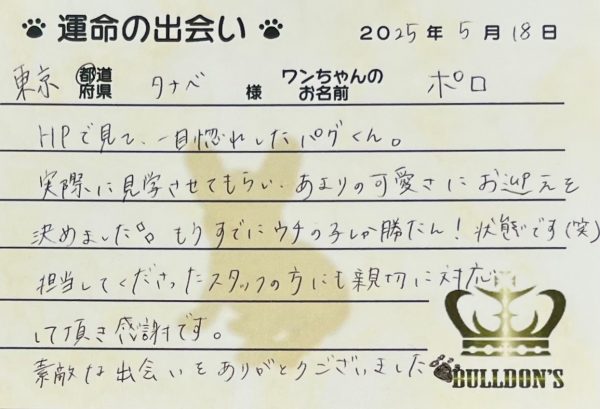 運命の出会い 2025年5月18日
東京 都道府県 タナベ 様 ワンちゃんのお名前 ポロ
HPで見て、一目惚れしたパグくん。
実際に見学させてもらい、あまりの可愛さにお迎えを
決めました。もうすでにウチの子しか勝たん!状態です(笑)
担当してくださったスタッフの方にも親切に対応
して頂き感謝です。
素敵な出会いをありがとうございました
BULLDON'S